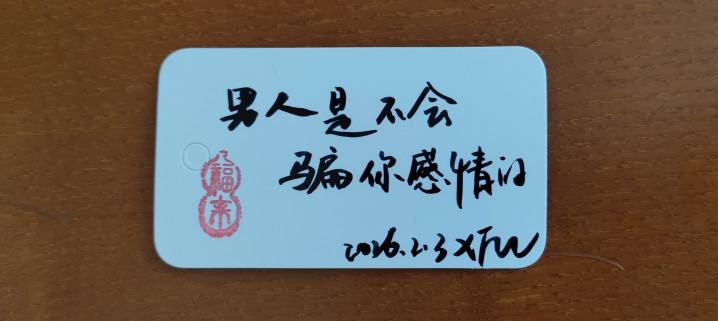 男人是不会
骗你感情的
福来
2026.2.3 XFW